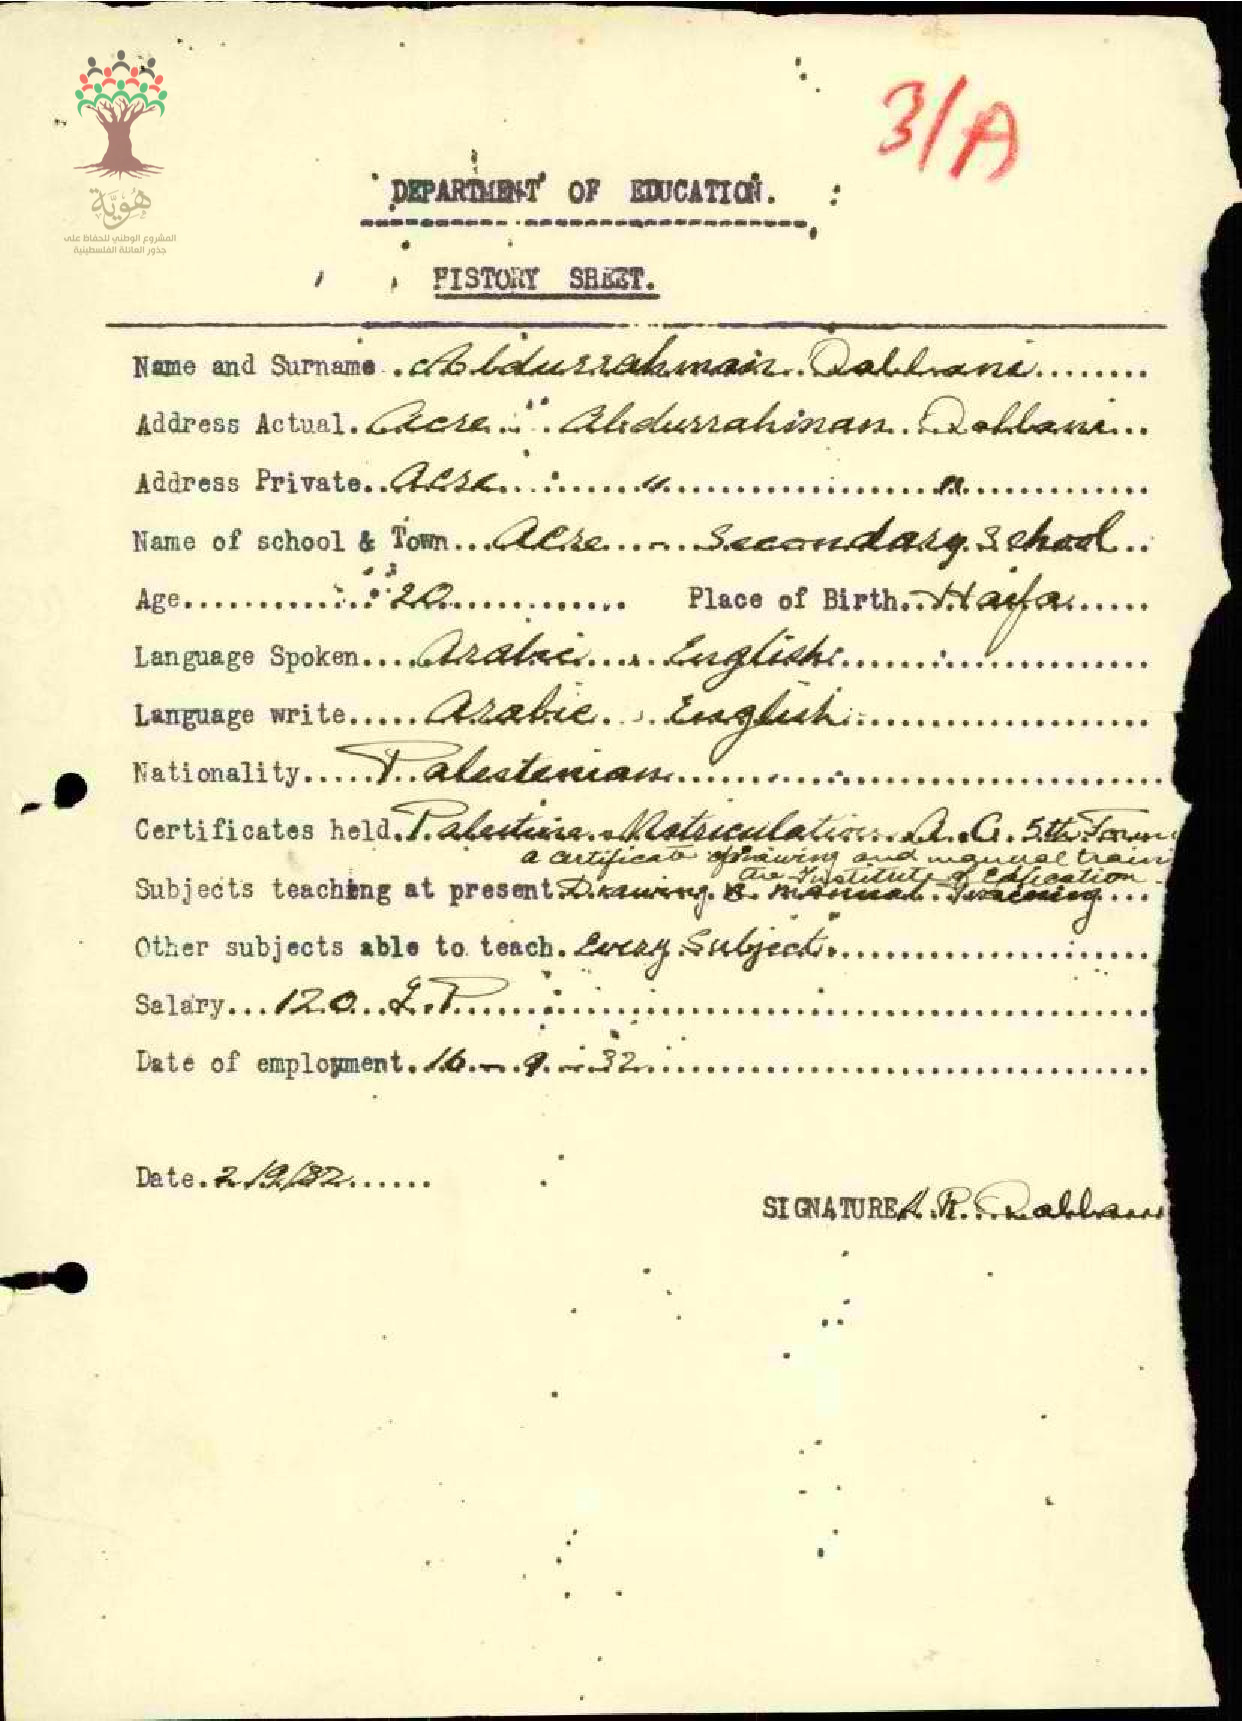 3/A
هُوِيَّة
المشروع الوطني للحفاظ على
جذور العائلة الفلسطينية
DEPARTMENT OF EDUCATION.
HISTORY SHEET.
Name and Surname. Abdurrahman Dabbani
Address Actual. Acre Abdurrahman Dabbani
Address Private.. Acre " "
Name of school & Town... Acre - Secondary School
Age 20 Place of Birth.. Haifa
Language Spoken.... Arabic English
Language write..... Arabic English
Nationality..... Palestenian
Certificates held. Palestine Matriculation A.C. 5th Form
a certificate of drawing and manual train
Institute of Education
Subjects teaching at present. Drawing & manual Training
Other subjects able to teach. Every Subject.
Salary... 120 L.P.
Date of employment. 16 - 9 - 32
Date. 2/9/32
SIGNATURE A. R. Dabbani